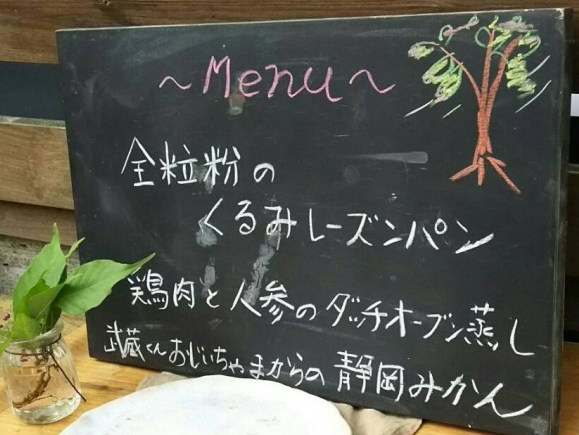 ～Menu～
全粒粉の
くるみレーズンパン
鶏肉と人参のダッチオーブン蒸し
武蔵くんおじいちゃまからの静岡みかん